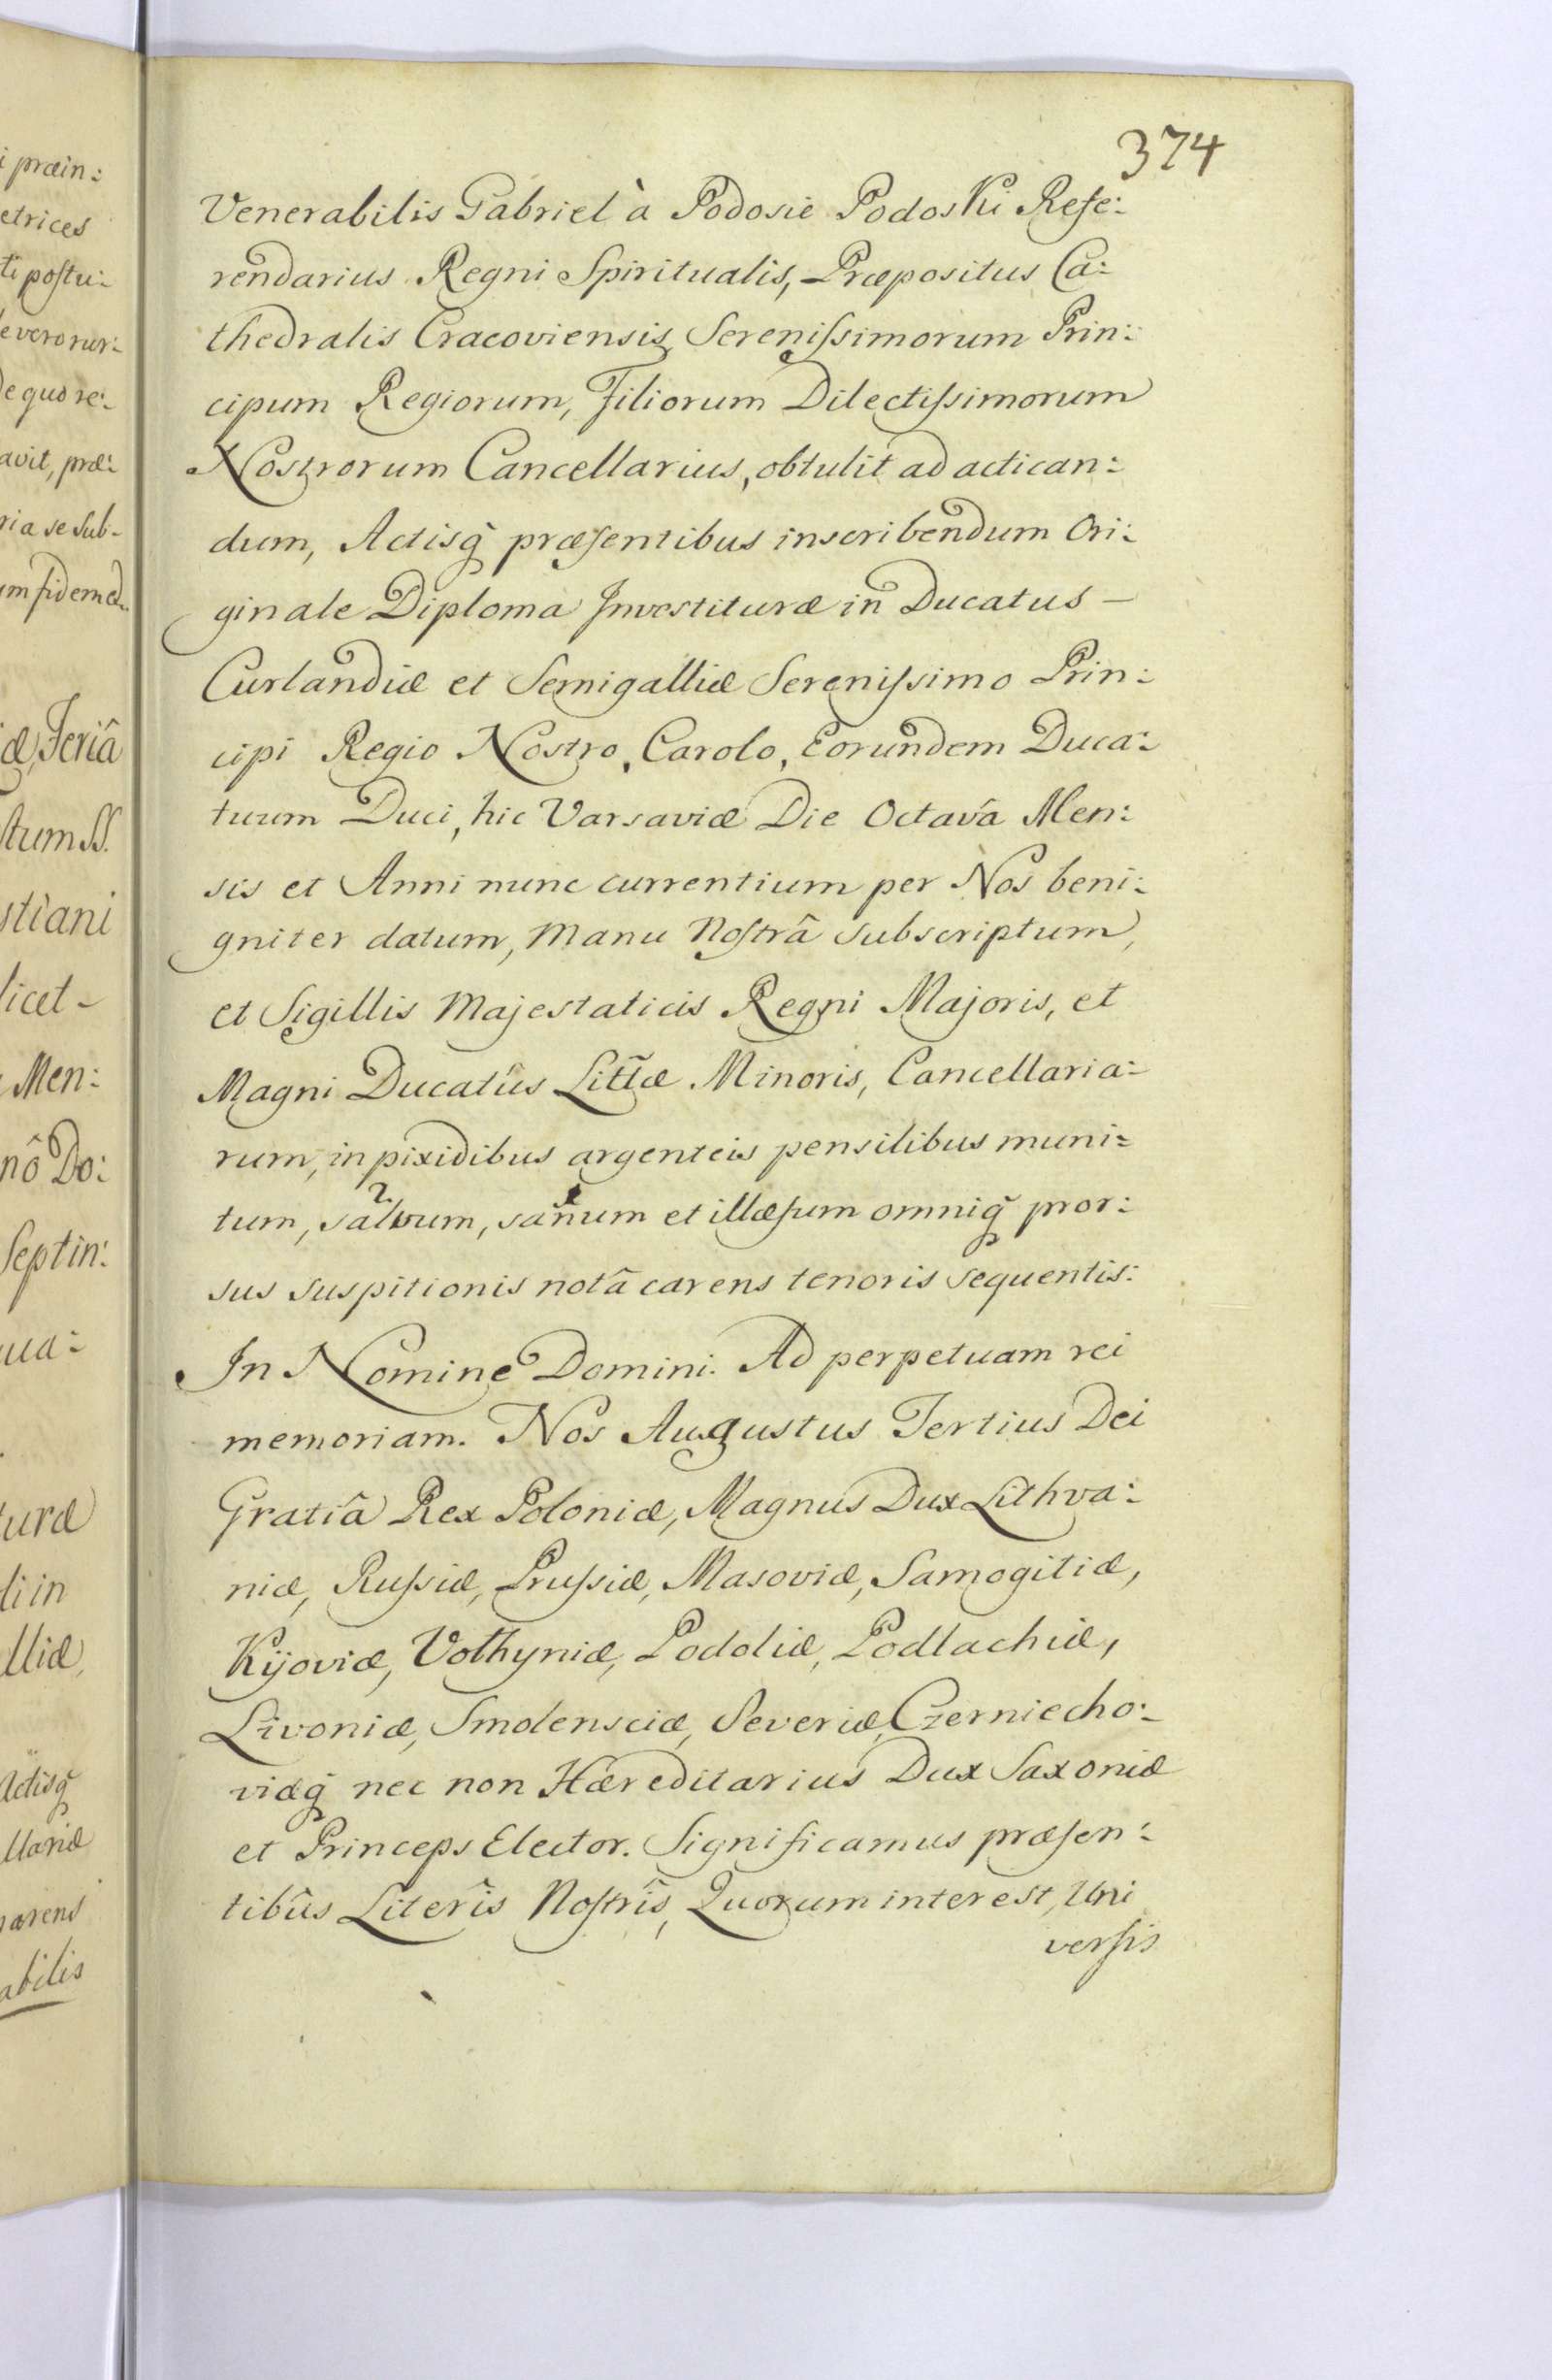 374
Venerabilis Gabriel à Podosie Podoski Refe:
rendarius Regni Spiritualis, Præpositus Ca:
thedralis Cracoviensis Serenißimorum Prin:
cipum Regiorum, Filiorum Dilectißimorum
Nostrorum Cancellarius, obtulit ad actican:
dum, Actisq̃ præsentibus inscribendum Ori:
ginale Diploma Investituræ in Ducatus –
Curlandiæ et Semigalliæ Serenißimo Prin:
cipi Regio Nostro, Carolo, Eorundem Duca:
tuum Duci, hic Varsaviæ Die Octavâ Men:
sis et Anni nunc currentium per Nos beni:
gniter datum, Manu Nostrâ subscriptum,
et Sigillis Majestaticis Regni Majoris, et
Magni Ducatûs Littæ Minoris, Cancellaria:
rum, in pixidibus argenteis pensilibus muni:
tum, salvum, sanum et illæsum omniq̃ pror:
sus suspitionis notâ carens tenoris sequentis:
In Nomine Domini. Ad perpetuam rei
memoriam. Nos Augustus Tertius Dei
Gratiâ Rex Poloniæ, Magnus Dux Lithva:
niæ, Rußiæ, Prußiæ, Masoviæ, Samogitiæ,
Kijoviæ, Volhyniæ, Podoliæ, Podlachiæ,
Livoniæ, Smolensciæ, Severiæ, Czerniecho:
viæq̃ nec non Hæreditarius Dux Saxoniæ
et Princeps Elector. Significamus præsen:
tibûs Literîs Nostrîs, Quorum interest, Uni
versis